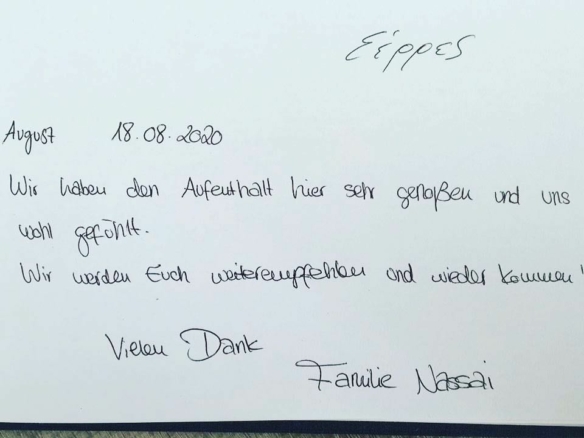 Eippes
August 18.08.2020
Wir haben den Aufenthalt hier sehr genoßen und uns
wohl gefühlt.
Wir werden Euch weiterempfehlen und wieder kommen!
Vielen Dank
Familie Nassai